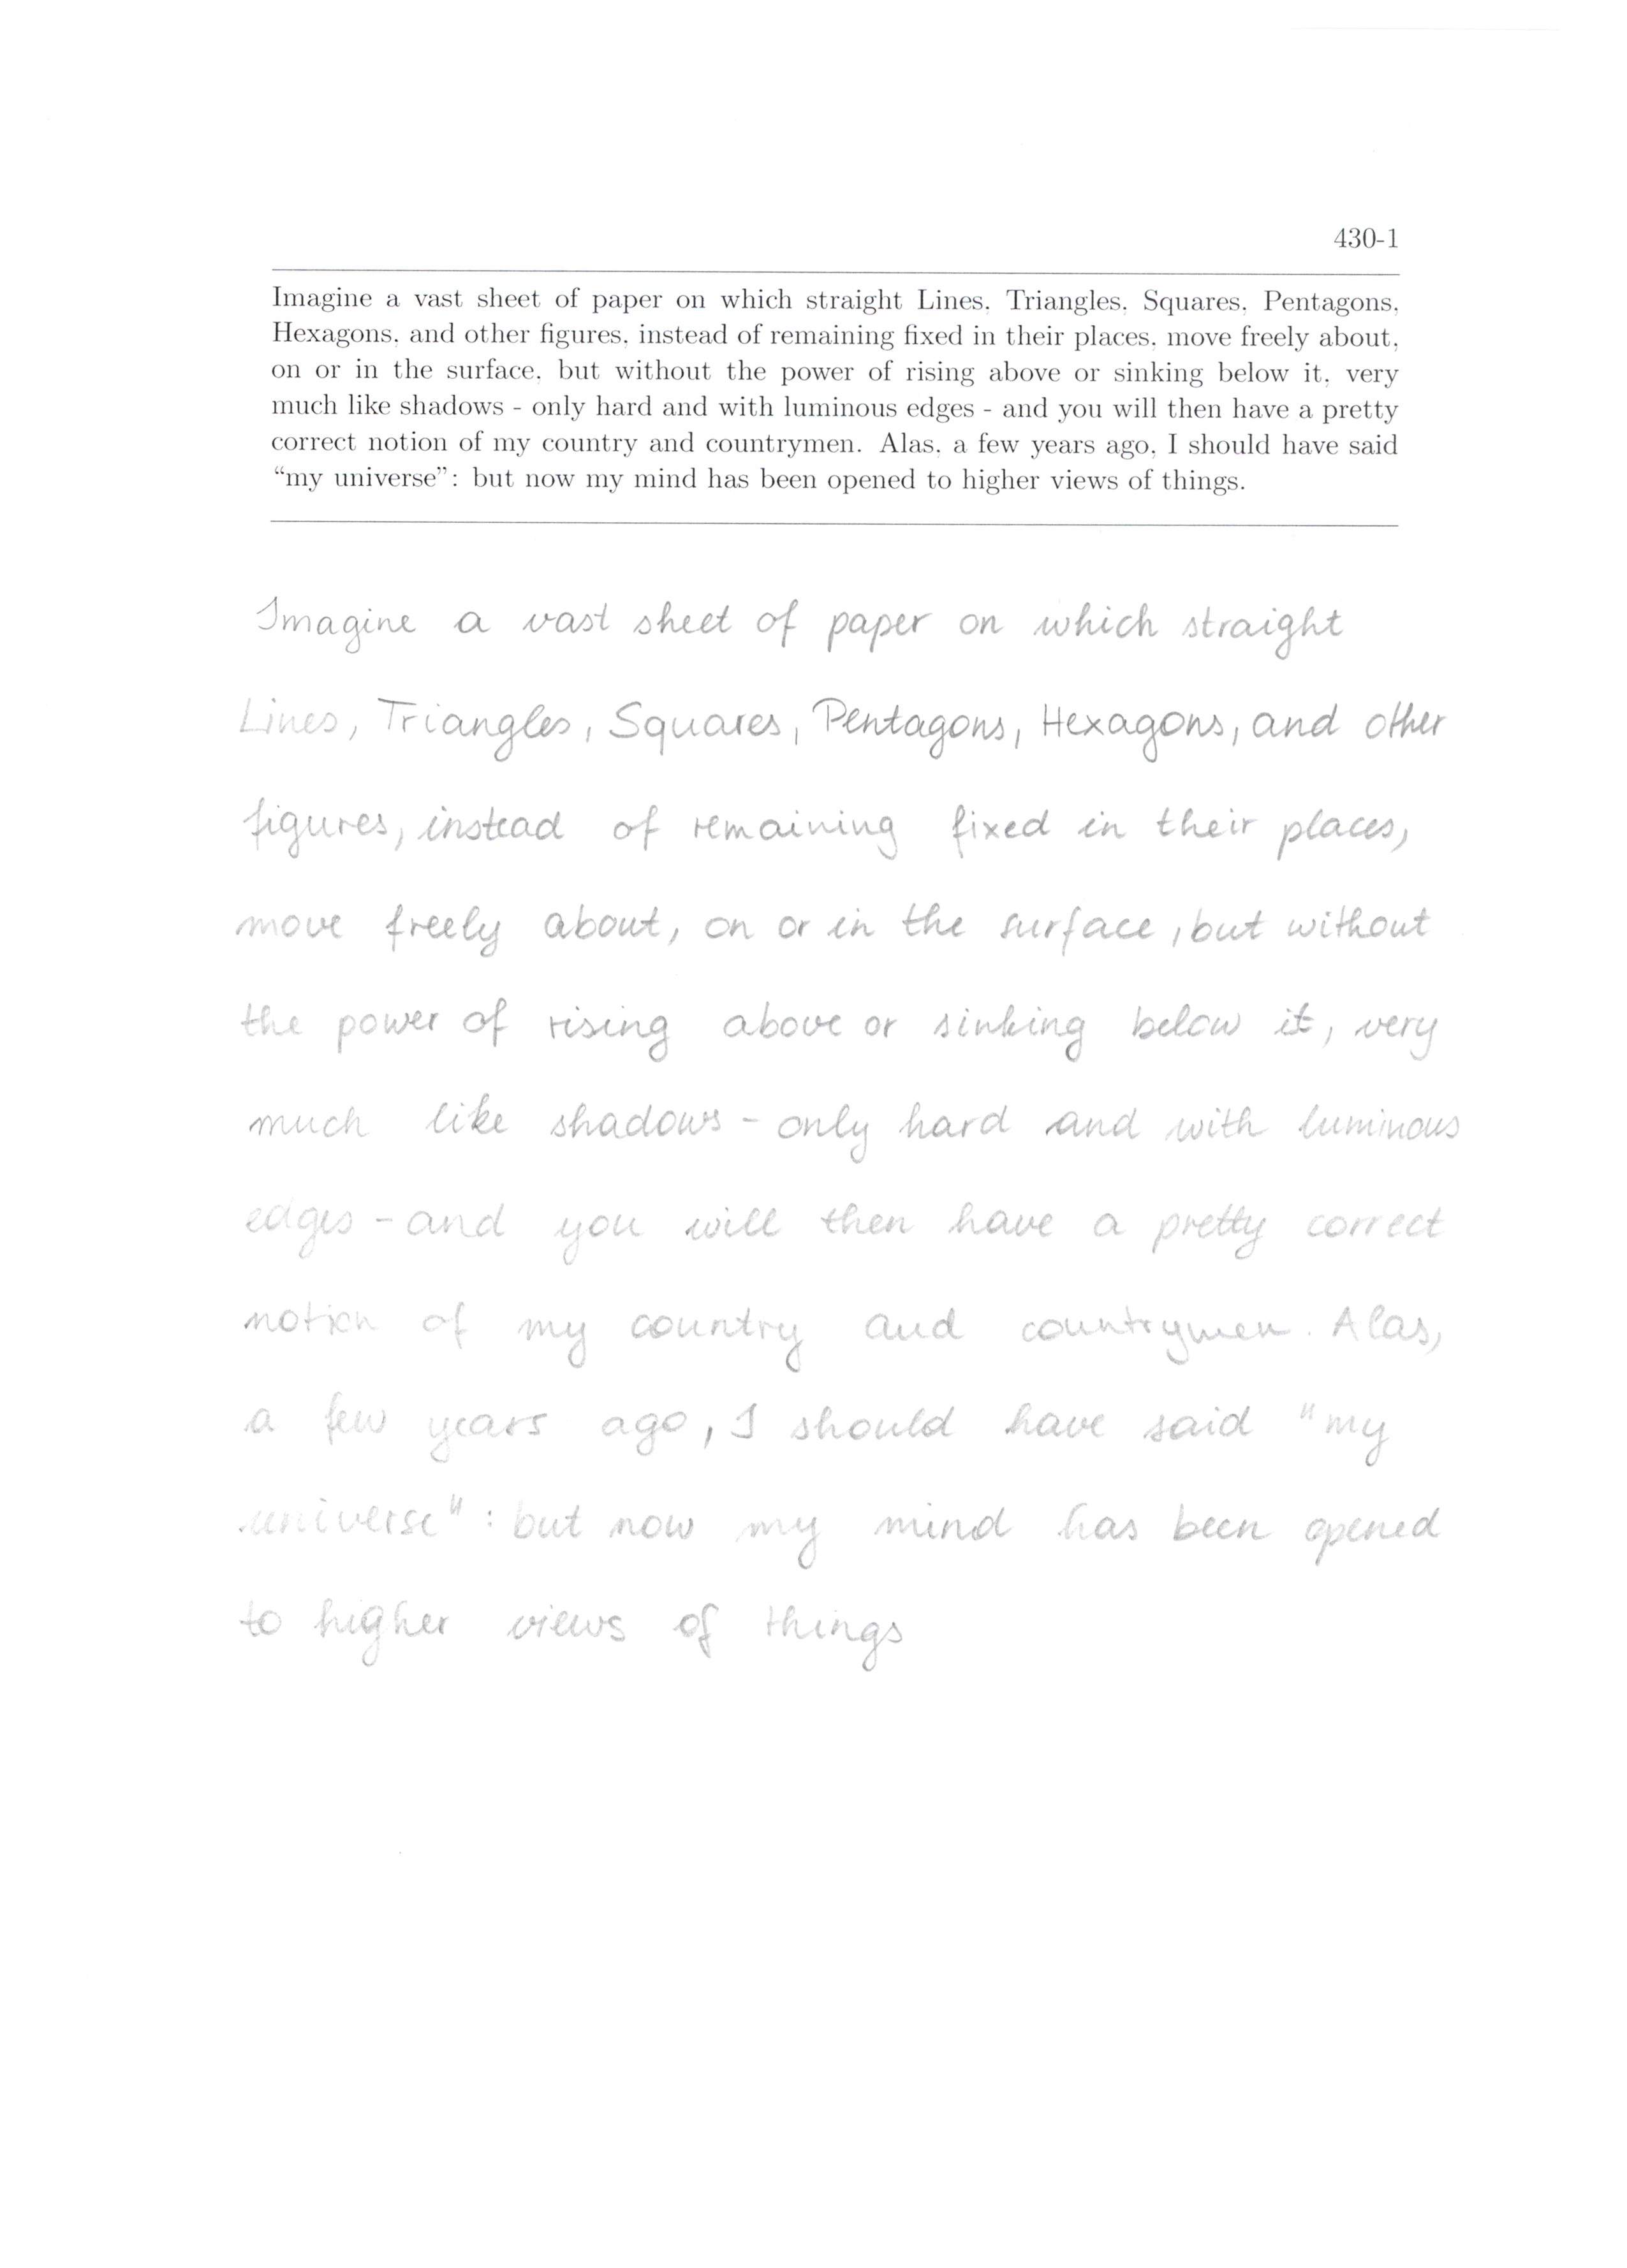 430-1
Imagine a vast sheet of paper on which straight Lines, Triangles, Squares, Pentagons,
Hexagons, and other figures, instead of remaining fixed in their places, move freely about,
on or in the surface, but without the power of rising above or sinking below it, very
much like shadows - only hard and with luminous edges - and you will then have a pretty
correct notion of my country and countrymen. Alas, a few years ago, I should have said
“my universe”: but now my mind has been opened to higher views of things.
Imagine a vast sheet of paper on which straight
Lines, Triangles, Squares, Pentagons, Hexagons, and other
figures, instead of remaining fixed in their places,
move freely about, on or in the surface, but without
the power of rising above or sinking below it, very
much like shadows - only hard and with luminous
edges - and you will then have a pretty correct
notion of my country and countrymen. Alas,
a few years ago, I should have said "my
universe": but now my mind has been opened
to higher views of things